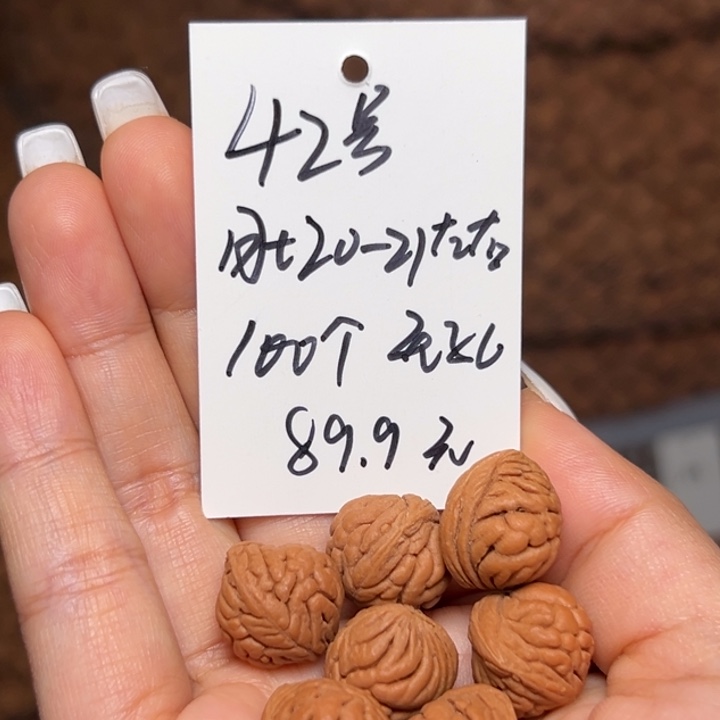 42号
20-21左右
100个 无孔
89.9元